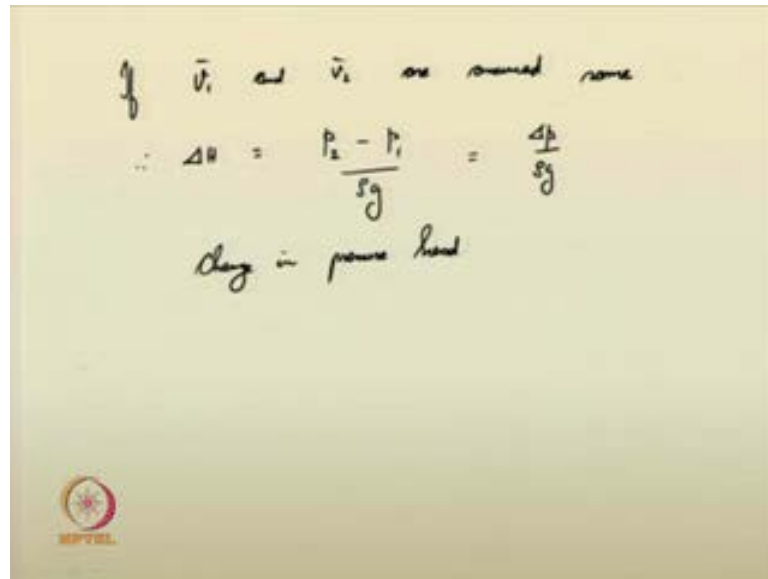 If v̄₁ and v̄₂ are assumed same
∴ ΔH = (P₂ - P₁)/ρg = Δp/ρg
Change in pressure head
NPTEL